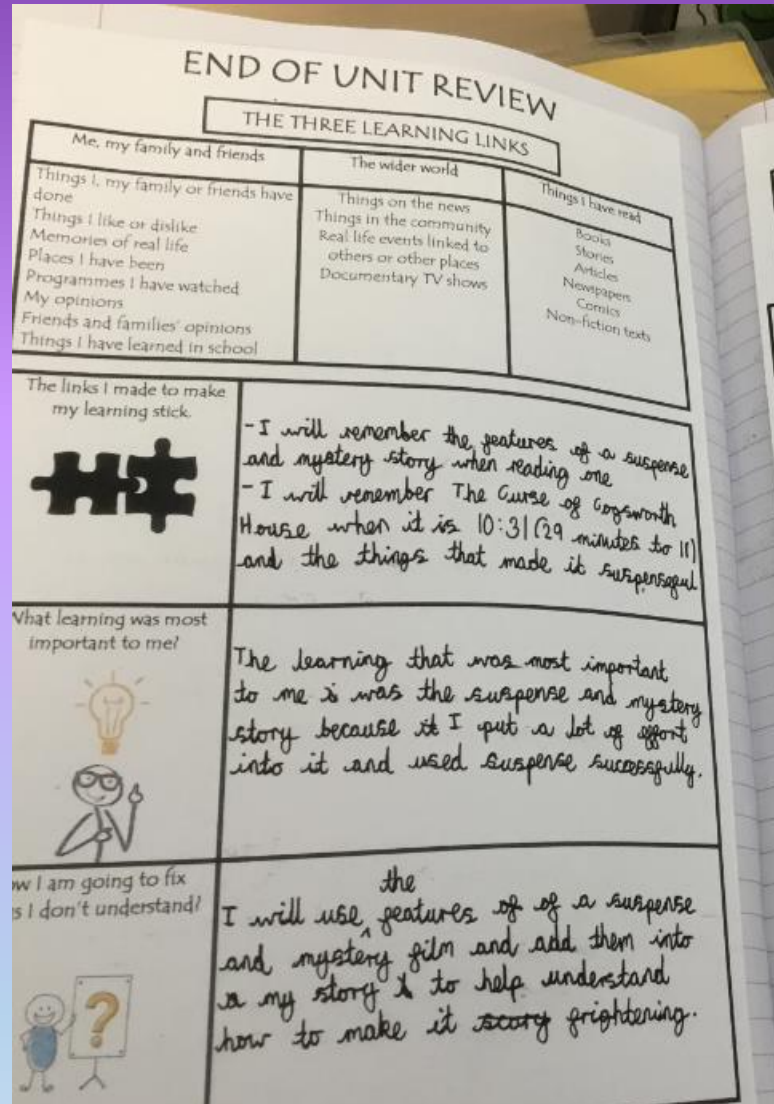 END OF UNIT REVIEW
THE THREE LEARNING LINKS
Me, my family and friends
Things I, my family or friends have
done
Things I like or dislike
Memories of real life
Places I have been
Programmes I have watched
My opinions
Friends and families' opinions
Things I have learned in school
The wider world
Things on the news
Things in the community
Real life events linked to
others or other places
Documentary TV shows
Things I have read
Books
Stories
Articles
Newspapers
Comics
Non-fiction texts
The links I made to make
my learning stick.
-I will remember the features of a suspense
and mystery story when reading one
-I will remember The Curse of Cogsworth
House when it is 10:31 (29 minutes to 11)
and the things that made it suspenseful
What learning was most
important to me?
The learning that was most important
to me is was the suspense and mystery
story because it I put a lot of effort
into it and used suspense successfully.
ow I am going to fix
s I don't understand?
I will use the features of of a suspense
and mystery film and add them into
a my story to help understand
how to make it scary frightening.